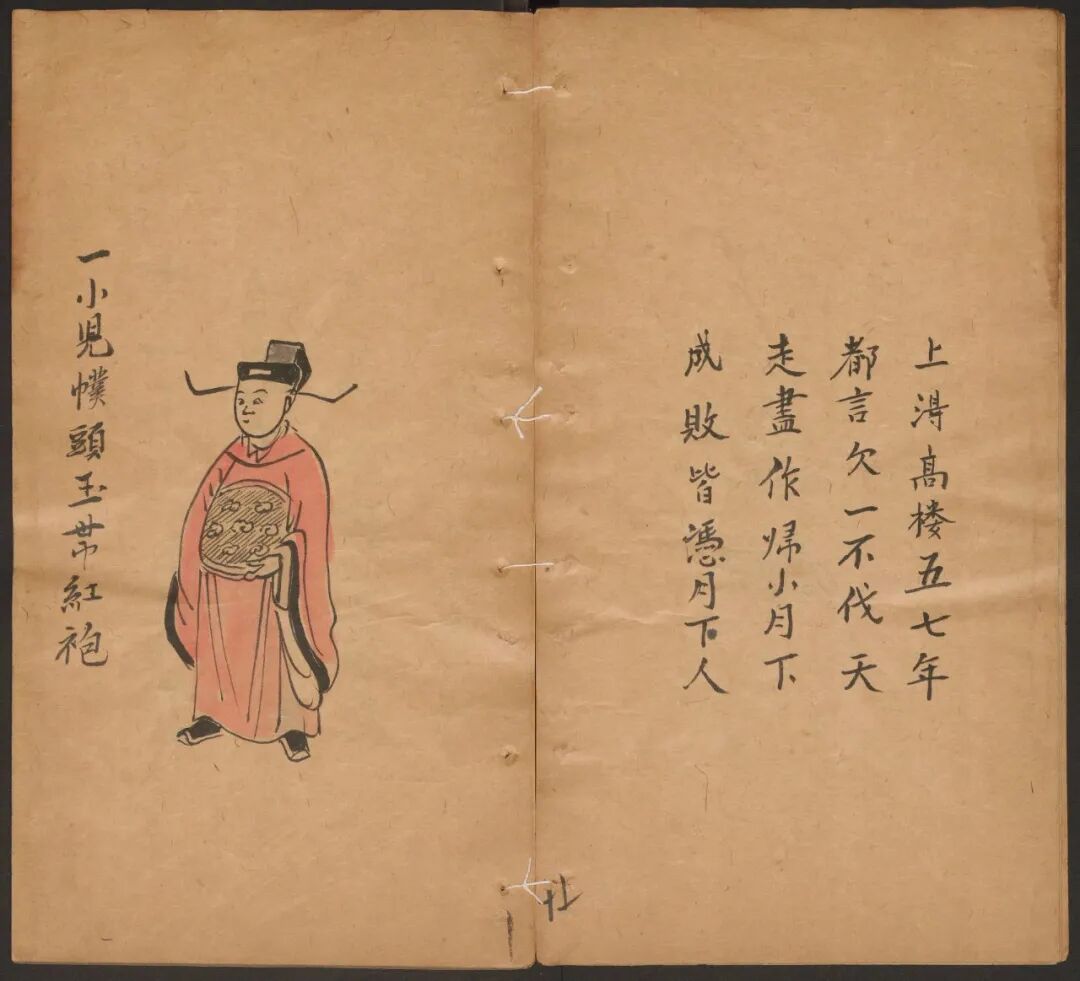 上淂高楼五七年
都言欠一不伐天
走盡作㷌小月下
成敗皆憑月下人
一小児幞頭玉帯紅袍